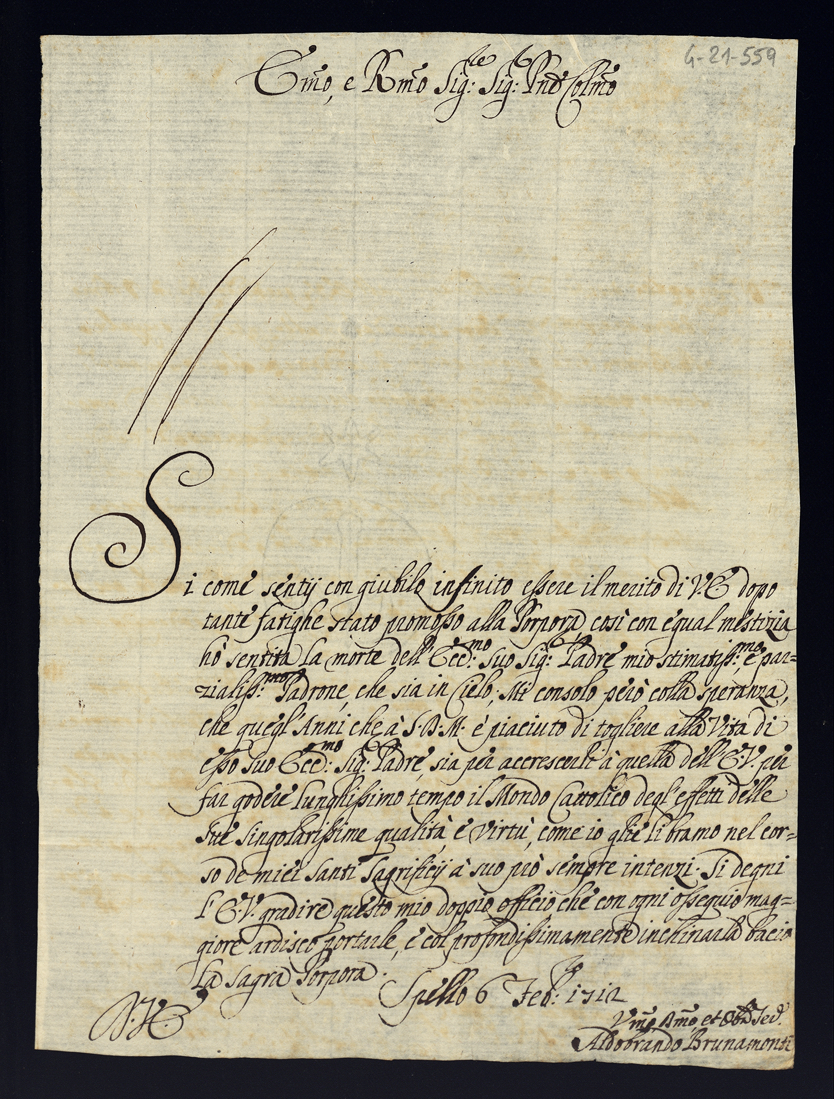 G-21-559
Emo, e Rmo Sig:re Sig: Pne Colmo
Si come sentij con giubilo infinito essere il merito di V.E dopo
tante fatighe stato promosso alla Porpora così con egual mestizia
hò sentita la morte dell'Ecc:mo suo Sig: Padre mio stimatiss:mo, e par=
zialiss:mo Padrone, che sia in Cielo; Mi consolo però colla speranza,
che quegl'Anni che à S.D.M. è piaciuto di togliere alla Vita di
esso suo Ecc:mo Sig: Padre, sia per accrescerli à quella dell'E.V. per
far godere lunghissimo tempo il Mondo Cattolico degl'effetti delle
sue singolarissime qualità, e virtù, come io glie li bramo nel cor=
so de miei Santi Sagrificij à suo prò sempre intenzi. Si degni
l'E.V. gradire questo mio doppio officio che con ogni ossequio mag=
giore ardisco portarle, e col profondissimamente inchinarla bacio
la Sagra Porpora.
Spello 6 Feb: 1712
Vmo, Dmo, et Obb
Aldobrando Brunamonti